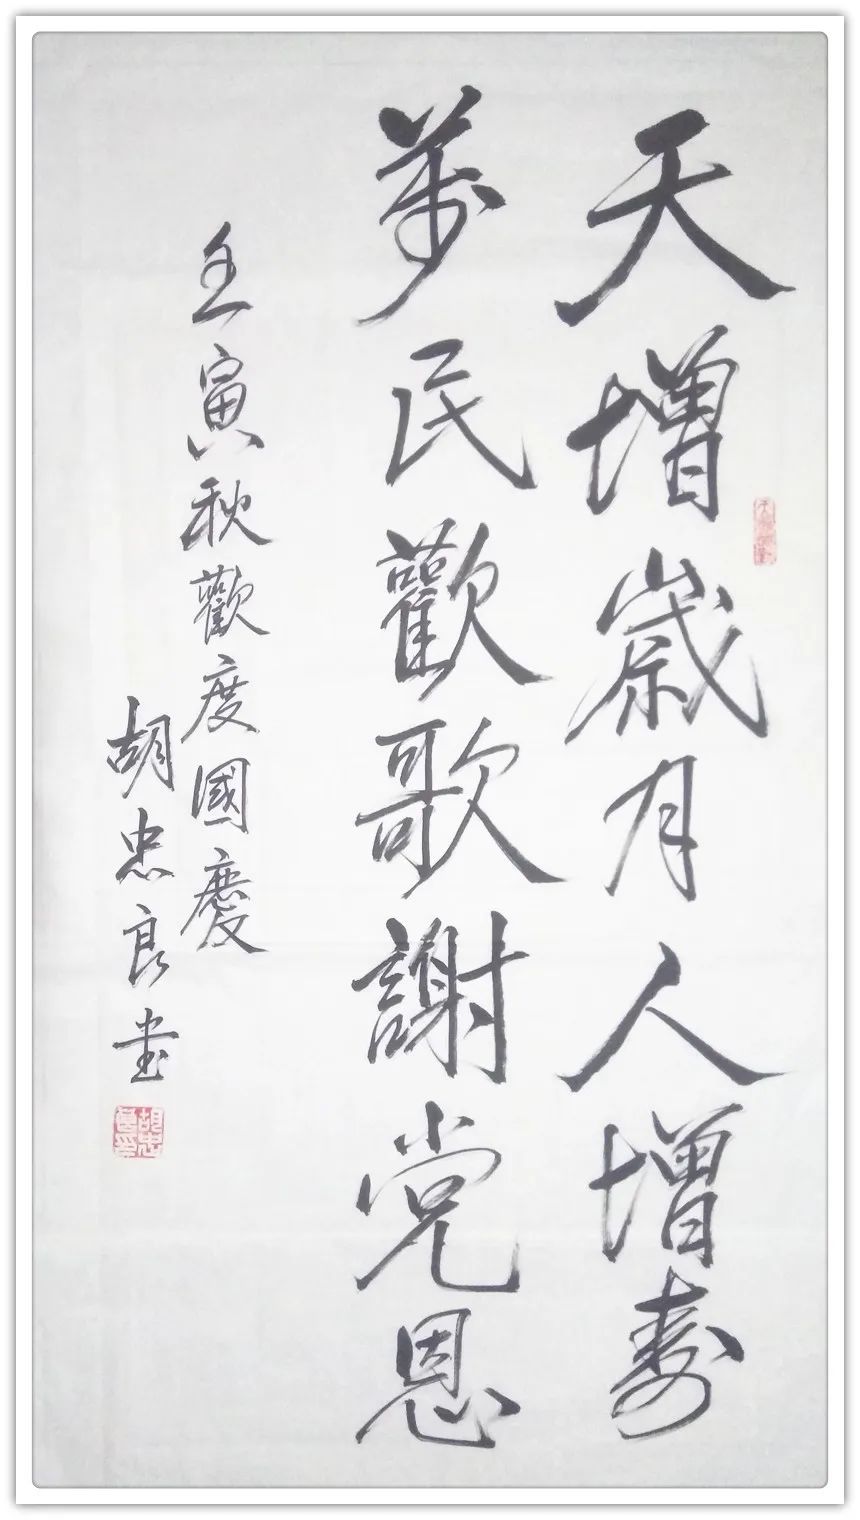 天增歲月人增壽
萬民歡歌謝党恩
壬寅秋歡度國慶
胡忠良书
胡忠良印